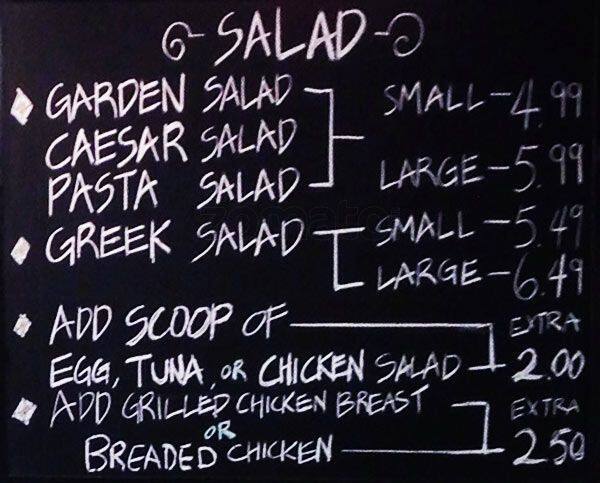 SALAD
GARDEN SALAD SMALL - 4.99
CAESAR SALAD
PASTA SALAD LARGE - 5.99
GREEK SALAD SMALL - 5.49
LARGE - 6.49
ADD SCOOP OF EXTRA
EGG, TUNA, OR CHICKEN SALAD 2.00
ADD GRILLED CHICKEN BREAST EXTRA
OR
BREADED CHICKEN 2.50